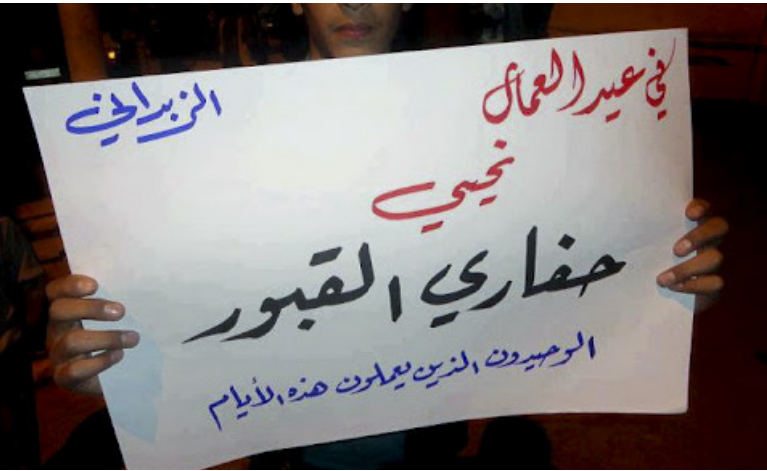 في عيد العمال
الزبداني
نحيي
حفاري القبور
الوحيدون الذين يعملون هذه الأيام